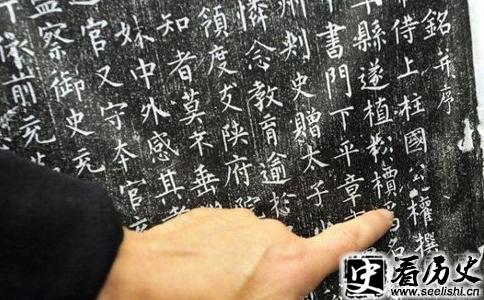 銘并序
侍上柱國公權撰
縣遂植松檟
書門下平章
州刺史贈太子
憐念教育逾
領度支陝府院
知者莫不垂
妹中外感其
官又守本官
監察御史充
前充
史
看历史
www.seelishi.cn